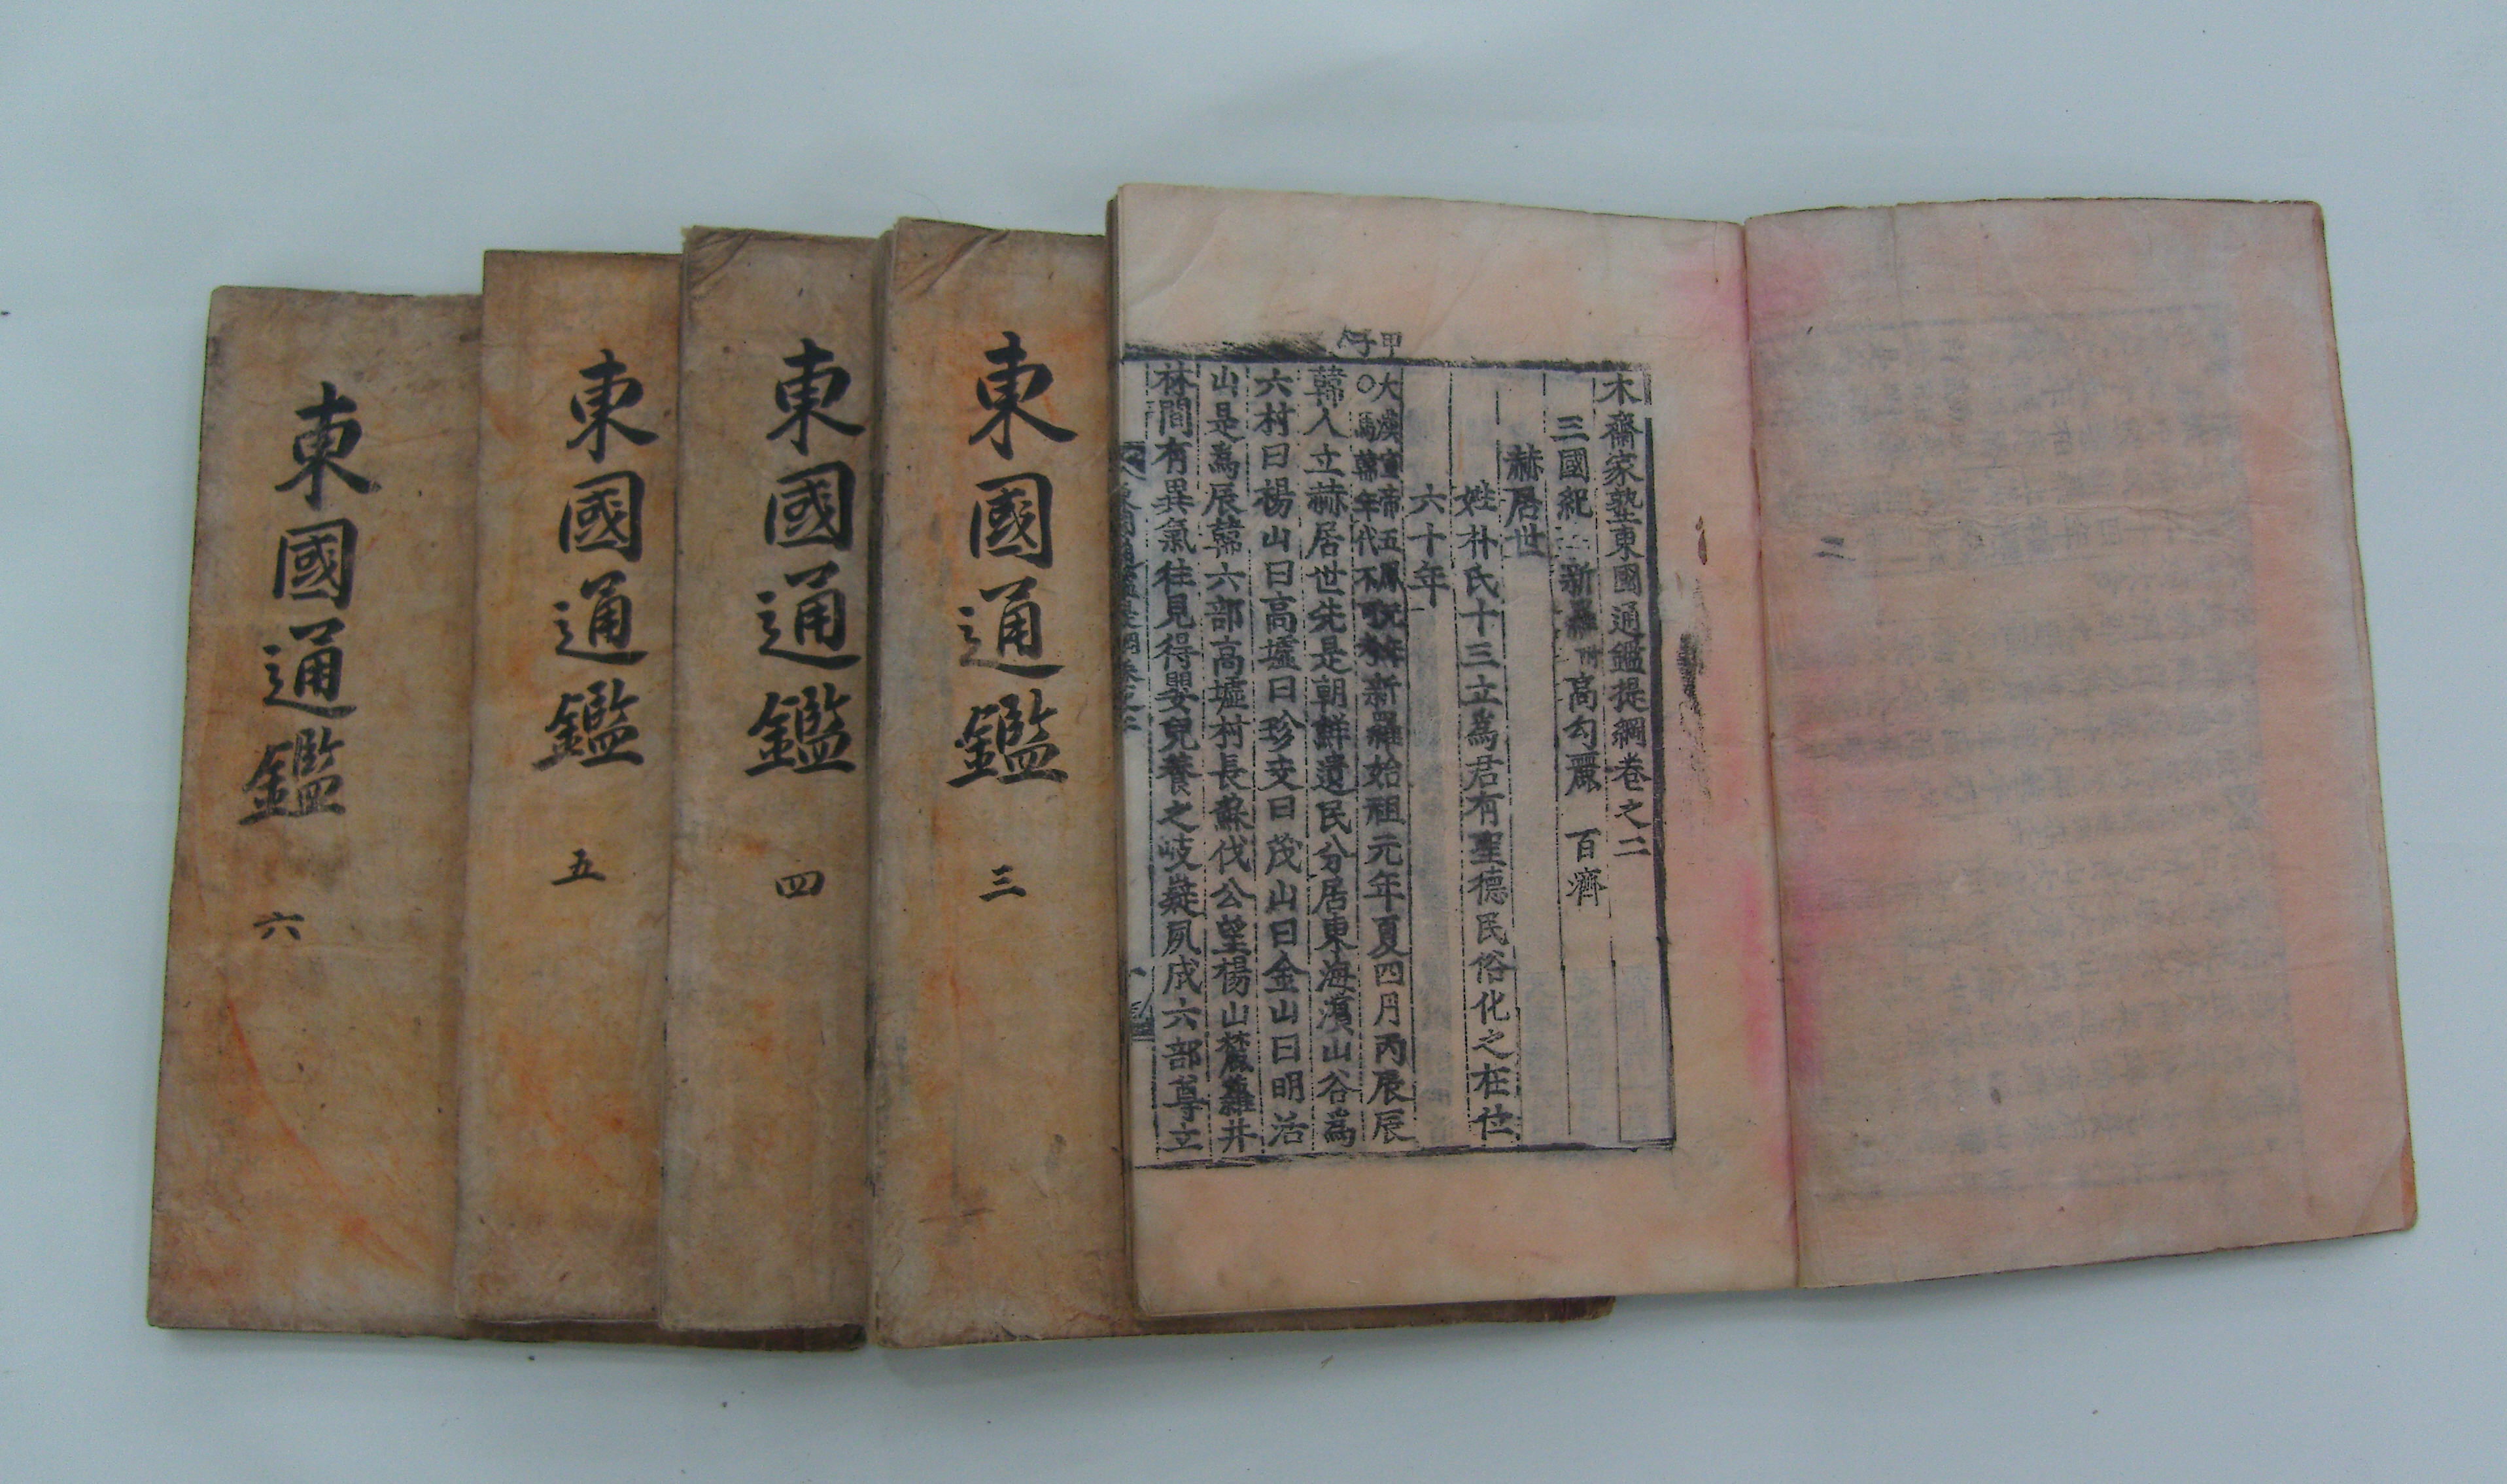 木齋家塾東國通鑑提綱卷之二
三國紀 新羅 附 高句麗 百濟
赫居世
姓朴氏十三立爲君有聖德民俗化之在位
六十年
甲子
大漢宣帝五鳳新羅始祖元年夏四月丙辰辰
○馬韓年代不可攷
韓人立赫居世先是朝鮮遺民分居東海濱山谷爲
六村曰楊山曰高墟曰珍支曰茂山曰金山曰明活
山是爲辰韓六部高墟村長蘇伐公望楊山麓蘿井
林間有異氣往見得嬰兒養之岐嶷夙成六部尊立
東國通鑑 三
東國通鑑 四
東國通鑑 五
東國通鑑 六
二